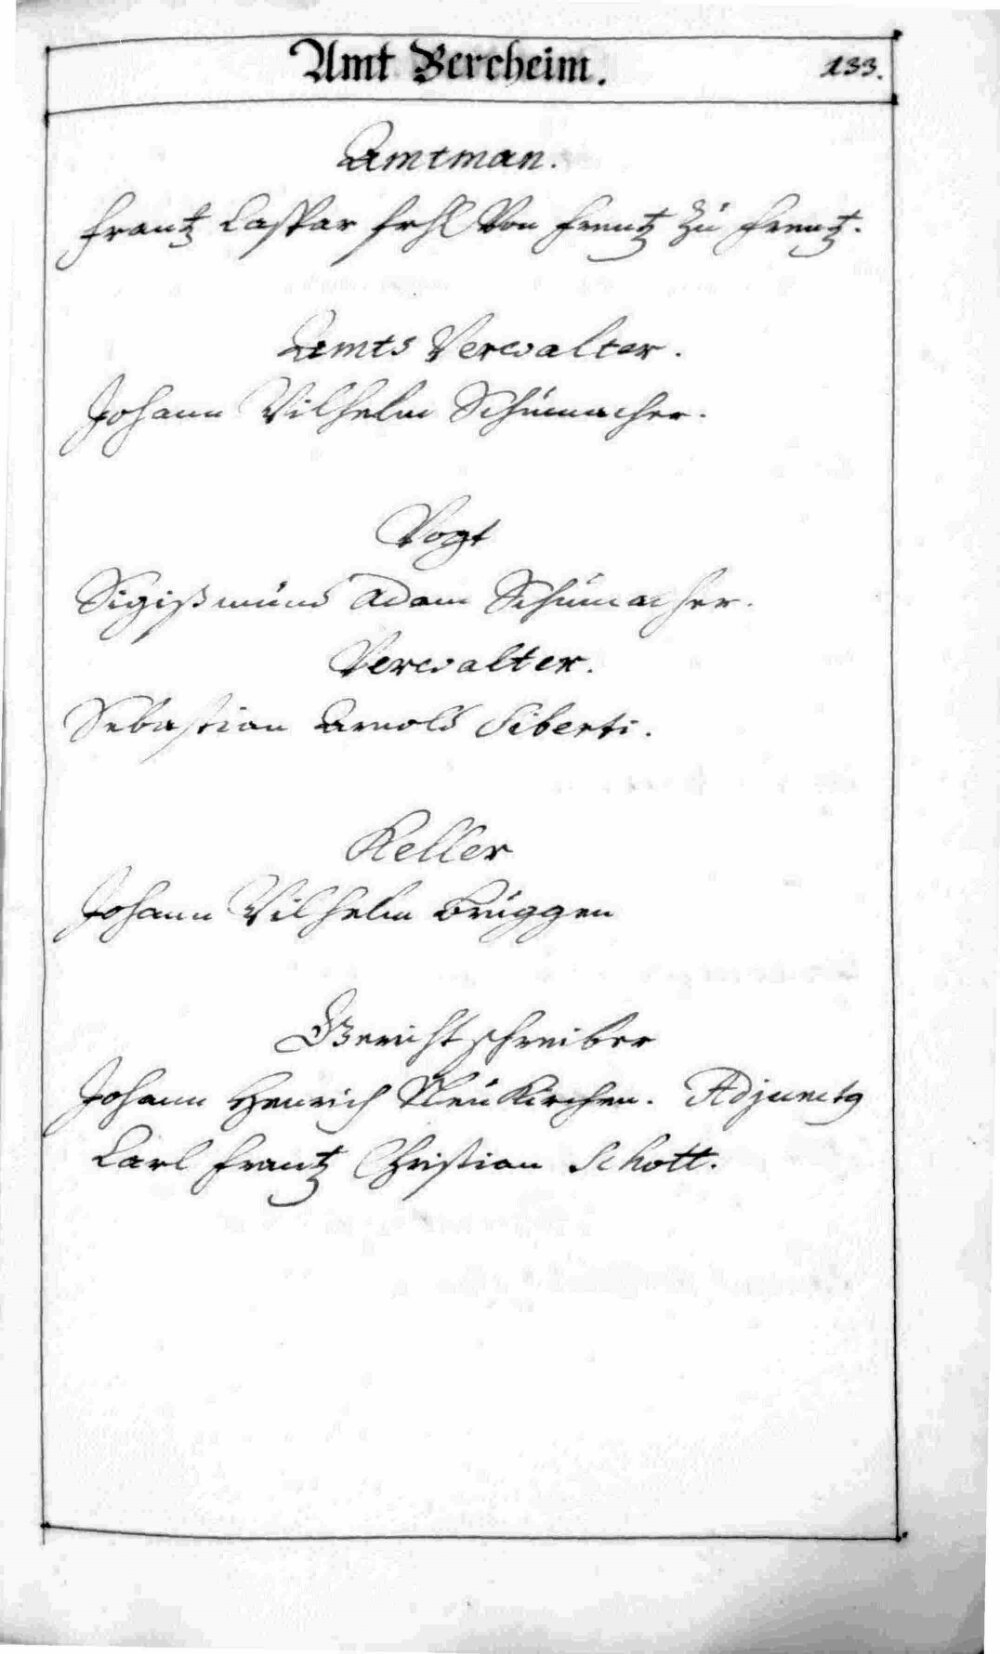 Amt Bercheim.
133.
Amtman.
Frantz Caspar frhl Von Frentz Zu Frentz.
Amts Verwalter.
Johann Wilhelm Schumacher.
Vogt
Sigißmund Adam Schumacher.
Verwalter.
Sebastian Arnold Siberti.
Keller
Johann Wilhelm Bruggen
Gerichtschreiber
Johann Henrich Neukirchen. Adjunctg
Carl Frantz Christian Schott.